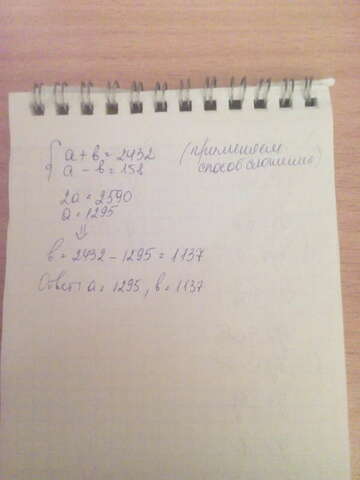 { a + b = 2432 (применяем
a - b = 158 способ сложения)
2a = 2590
a = 1295
⇓
b = 2432 - 1295 = 1137
Ответ: a = 1295, b = 1137